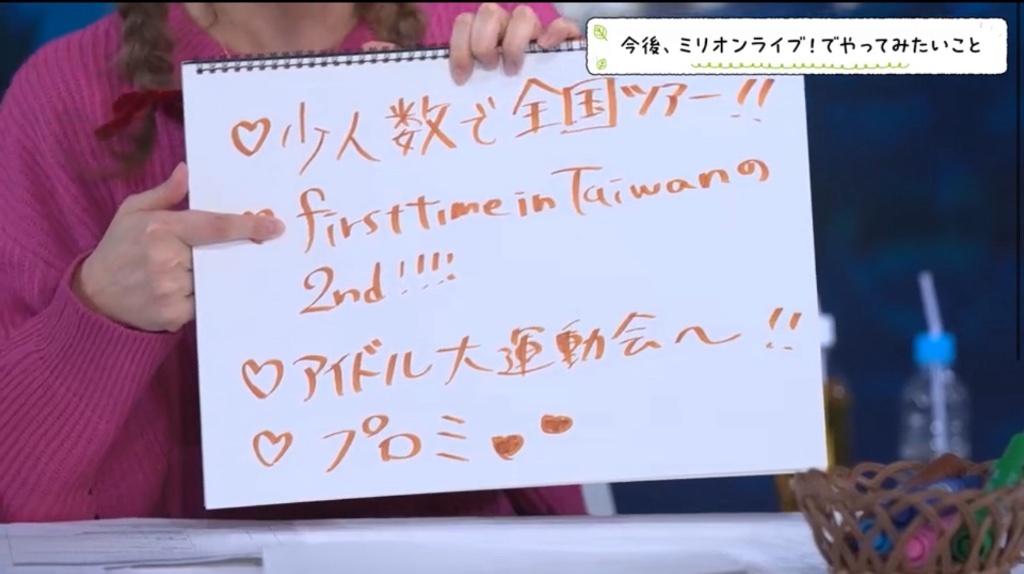 今後、ミリオンライブ!でやってみたいこと
♡少人数で全国ツアー!!
♡first time in Taiwanの
2nd!!!!
♡アイドル大運動会へ!!
♡プロミ♥♥